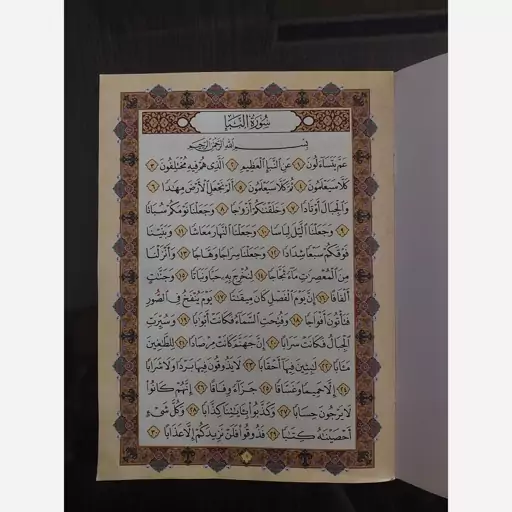 سُورَةُ النَّبَإِ
بِسْمِ اللَّهِ الرَّحْمَٰنِ الرَّحِيمِ
عَمَّ يَتَسَاءَلُونَ ۱ عَنِ النَّبَإِ الْعَظِيمِ ۲ الَّذِي هُمْ فِيهِ مُخْتَلِفُونَ ۳
كَلَّا سَيَعْلَمُونَ ۴ ثُمَّ كَلَّا سَيَعْلَمُونَ ۵ أَلَمْ نَجْعَلِ الْأَرْضَ مِهَادًا ۶
وَالْجِبَالَ أَوْتَادًا ۷ وَخَلَقْنَاكُمْ أَزْوَاجًا ۸ وَجَعَلْنَا نَوْمَكُمْ سُبَاتًا
۹ وَجَعَلْنَا اللَّيْلَ لِبَاسًا ۱۰ وَجَعَلْنَا النَّهَارَ مَعَاشًا ۱۱ وَبَنَيْنَا
فَوْقَكُمْ سَبْعًا شِدَادًا ۱۲ وَجَعَلْنَا سِرَاجًا وَهَّاجًا ۱۳ وَأَنْزَلْنَا
مِنَ الْمُعْصِرَاتِ مَاءً ثَجَّاجًا ۱۴ لِنُخْرِجَ بِهِ حَبًّا وَنَبَاتًا ۱۵ وَجَنَّاتٍ
أَلْفَافًا ۱۶ إِنَّ يَوْمَ الْفَصْلِ كَانَ مِيقَاتًا ۱۷ يَوْمَ يُنْفَخُ فِي الصُّورِ
فَتَأْتُونَ أَفْوَاجًا ۱۸ وَفُتِحَتِ السَّمَاءُ فَكَانَتْ أَبْوَابًا ۱۹ وَسُيِّرَتِ
الْجِبَالُ فَكَانَتْ سَرَابًا ۲۰ إِنَّ جَهَنَّمَ كَانَتْ مِرْصَادًا ۲۱ لِلطَّاغِينَ
مَآبًا ۲۲ لَابِثِينَ فِيهَا أَحْقَابًا ۲۳ لَا يَذُوقُونَ فِيهَا بَرْدًا وَلَا شَرَابًا
۲۴ إِلَّا حَمِيمًا وَغَسَّاقًا ۲۵ جَزَاءً وِفَاقًا ۲۶ إِنَّهُمْ كَانُوا
لَا يَرْجُونَ حِسَابًا ۲۷ وَكَذَّبُوا بِآيَاتِنَا كِذَّابًا ۲۸ وَكُلَّ شَيْءٍ
أَحْصَيْنَاهُ كِتَابًا ۲۹ فَذُوقُوا فَلَنْ نَزِيدَكُمْ إِلَّا عَذَابًا ۳۰